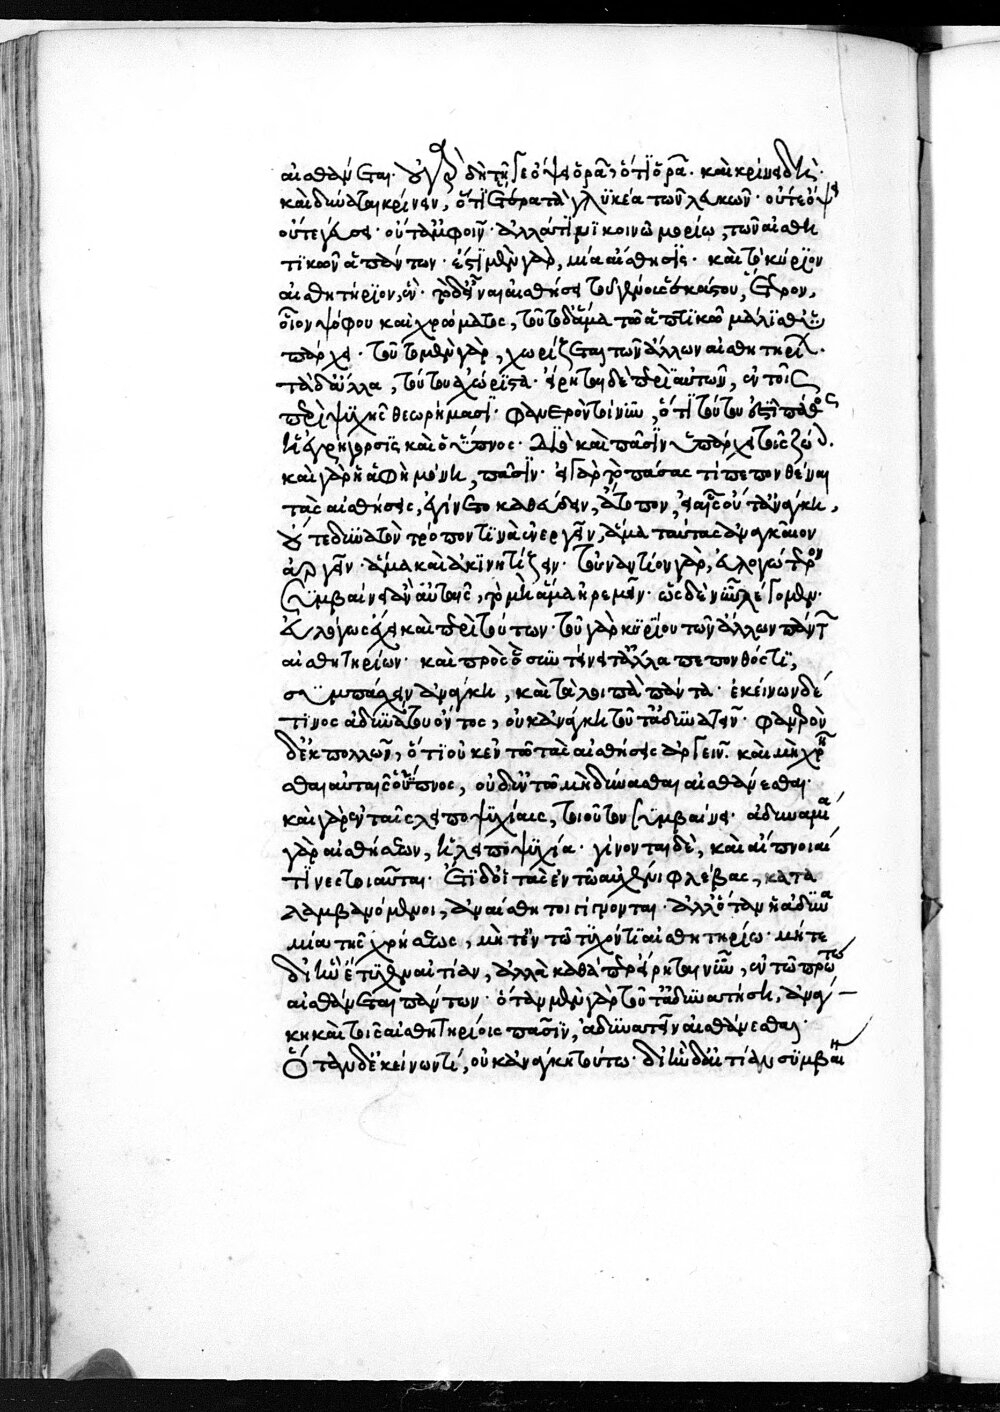 αἰσθάνεται· οὐ γὰρ δὴ τῇ γε ὄψει ὁρᾷ, ὅτι ὁρᾷ. καὶ κρίνει δὴ
καὶ δύναται κρίνειν, ὅτι ἕτερα τὰ γλυκέα τῶν λευκῶν· οὔτε ὄψει
οὔτε γεύσει· οὔτ' ἀμφοῖν· ἀλλά τινι κοινῶ μορίω, τῶν αἰσθη
τικῶν ἁπάντων· ἔστι μὲν γὰρ, μία αἴσθησις· καὶ τὸ κύριον
αἰσθητήριον, ἕν· τὸ δ' εἶναι αἰσθήσει τοῦ γένους ἑκάστου, ἕτερον,
οἷον ψόφου καὶ χρώματος, τοῦτο δ' ἅμα τῶ ἁπτικῶ μάλισθ' ὑ
πάρχει· τοῦτο μὲν γὰρ, χωρίζεται τῶν ἄλλων αἰσθητηρίων·
τὰ δ' ἄλλα, τούτου ἀχώριστα· εἴρηται δὲ περὶ αὐτῶν, ἐν τοῖς
περὶ ψυχῆς θεωρήμασι· φανερὸν τοίνυν, ὅτι τούτου ἐστὶ πάθος
ἡ ἐγρήγορσις καὶ ὁ ὕπνος· διὸ καὶ πᾶσιν ὑπάρχει τοῖς ζώοις.
καὶ γὰρ ἡ ἁφὴ μόνη, πᾶσιν· εἰ γὰρ τὸ πάσας τι πεπονθέναι
τὰς αἰσθήσεις, ἐγίνετο καθεύδειν, ἄτοπον, εἰ αἷς οὔτ' ἀνάγκη,
οὔτε δυνατὸν τρόπον τινὰ ἐνεργεῖν, ἅμα ταύτας ἀναγκαῖον
ἀργεῖν· ἅμα καὶ ἀκινητίζειν· τοὐναντίον γὰρ, εὐλογώτερον
συμβαίνει ἂν αὐταῖς, τὸ μὴ ἅμα ἠρεμεῖν· ὡς δὲ νῦν λέγομεν·
εὐλόγως ἔχει καὶ περὶ τούτων· τοῦ γὰρ κυρίου τῶν ἄλλων πάντων
αἰσθητηρίων· καὶ πρὸς ὃ συντείνει τἄλλα πεπονθός τι,
συμπάσχειν ἀνάγκη, καὶ τὰ λοιπὰ πάντα· ἐκείνων δέ
τινος ἀδυνατοῦντος, οὐκ ἀνάγκη τοῦτ' ἀδυνατεῖν· φανερὸν
δ' ἐκ πολλῶν, ὅτι οὐκ ἐν τῶ τὰς αἰσθήσεις ἀργεῖν· καὶ μὴ χρῆ
σθαι αὐταῖς ὁ ὕπνος, οὐδ' ἐν τῶ μὴ δύνασθαι αἰσθάνεσθαι·
καὶ γὰρ ἐν ταῖς λειποψυχίαις, τοιοῦτον συμβαίνει· ἀδυναμία
γὰρ αἰσθήσεων, ἡ λειποψυχία· γίνονται δὲ, καὶ αἱ πνοιαί
τινες τοιαῦται· ἔτι δ' οἱ τὰς ἐν τῶ αὐχένι φλέβας, κατα
λαμβανόμενοι, ἀναίσθητοι γίγνονται· ἀλλ' ὅταν ἡ ἀδυνα
μία τῆς χρήσεως, μήτ' ἐν τῶ τυχόντι αἰσθητηρίω· μήτε
δι' ἣν ἔτυχεν αἰτίαν, ἀλλὰ καθάπερ εἴρηται νῦν, ἐν τῶ πρώτω
αἰσθάνεται πάντων· ὅταν μὲν γὰρ τοῦτ' ἀδυνατήση, ἀνάγ
κη καὶ τοῖς αἰσθητηρίοις πᾶσιν, ἀδυνατεῖν αἰσθάνεσθαι·
Ὅταν δ' ἐκείνων τί, οὐκ ἀνάγκη τούτω· δι' ἣν δ' αἰτίαν συμβαί